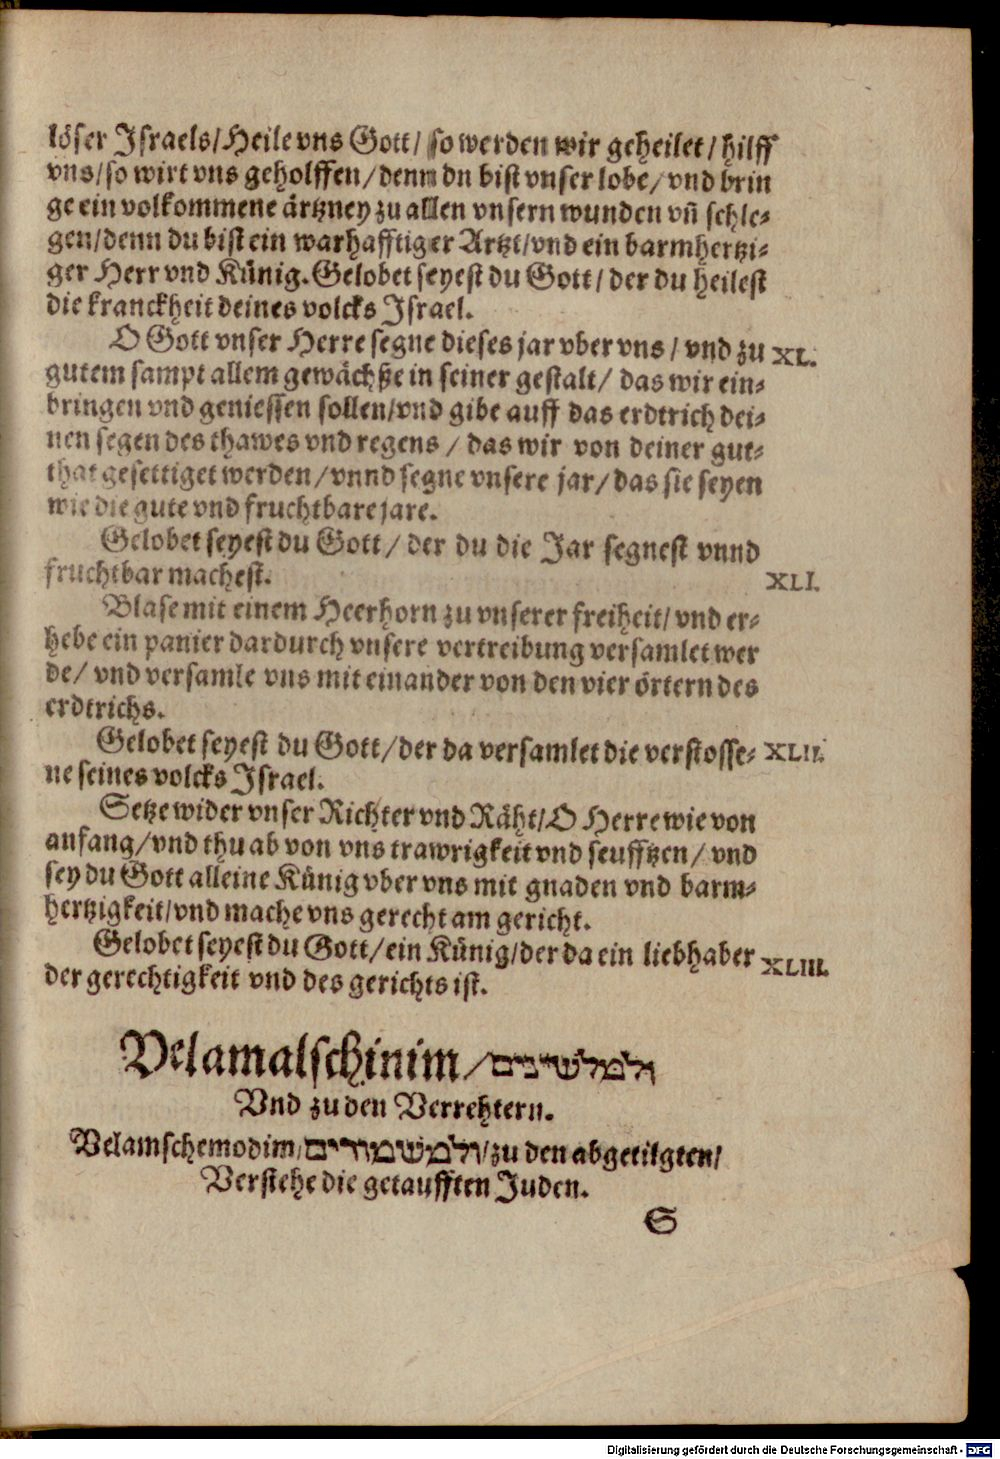 löser Israels/Heile vns Gott/ so werden wir geheilet/ hilff
vns/so wirt vns geholffen/denn dn bist vnser lobe/vnd brin
ge ein volkommene ärtzney zu allen vnsern wunden vn̄ schle-
gen/denn du bist ein warhafftiger Artzt/vnd ein barmhertzi-
ger Herr vnd Künig. Gelobet seyest du Gott/ der du heilest
die kranckheit deines volcks Israel.
O Gott vnser Herre segne dieses jar vber vns/ vnd zu XL.
gutem sampt allem gewächße in seiner gestalt/ das wir ein-
bringen vnd geniessen sollen/vnd gibe auff das erdtrich dei-
nen segen des thawes vnd regens / das wir von deiner gut-
that gesettiget werden/vnnd segne vnsere jar/ das sie seyen
wie die gute vnd fruchtbare jare.
Gelobet seyest du Gott/ der du die Jar segnest vnnd
fruchtbar machest. XLI.
Blase mit einem Heerhorn zu vnserer freiheit/ vnd er-
hebe ein panier dardurch vnsere vertreibung versamlet wer
de/ vnd versamle vns mit einander von den vier örtern des
erdtrichs.
Gelobet seyest du Gott/der da versamlet die verstosse- XLII.
ne seines volcks Israel.
Setze wider vnser Richter vnd Räht/O Herre wie von
anfang/vnd thu ab von vns trawrigkeit vnd seufftzen/ vnd
sey du Gott alleine Künig vber vns mit gnaden vnd barm-
hertzigkeit/vnd mache vns gerecht am gericht.
Gelobet seyest du Gott/ein Künig/der da ein liebhaber XLIII.
der gerechtigkeit vnd des gerichts ist.
Velamalschinim/ולמלשינים
Vnd zu den Verrehtern.
Velamschemodim/ולמשמודים/zu den abgetilgten/
Verstehe die getaufften Juden.
S
Digitalisierung gefördert durch die Deutsche Forschungsgemeinschaft - DFG